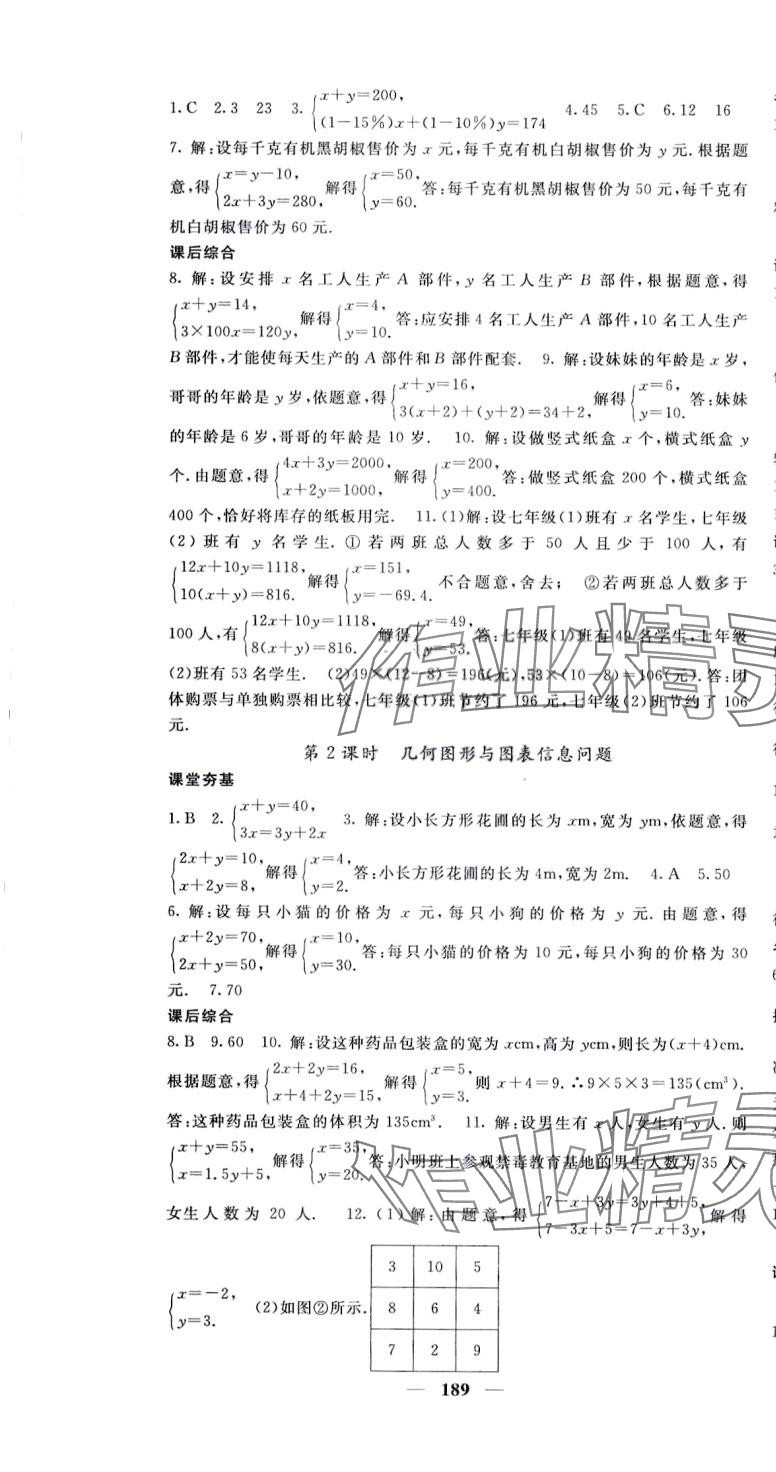 1.C 2.3 23 3. {x+y=200, (1-15%)x+(1-10%)y=174 4.45 5.C 6.12 16
7. 解:设每千克有机黑胡椒售价为 x 元,每千克有机白胡椒售价为 y 元.根据题
意,得{x=y-10, 2x+3y=280, 解得{x=50, y=60. 答:每千克有机黑胡椒售价为 50 元,每千克有
机白胡椒售价为 60 元.
课后综合
8. 解:设安排 x 名工人生产 A 部件,y 名工人生产 B 部件,根据题意,得
{x+y=14, 3×100x=120y, 解得{x=4, y=10. 答:应安排 4 名工人生产 A 部件,10 名工人生产
B 部件,才能使每天生产的 A 部件和 B 部件配套. 9. 解:设妹妹的年龄是 x 岁,
哥哥的年龄是 y 岁,依题意,得{x+y=16, 3(x+2)+(y+2)=34+2, 解得{x=6, y=10. 答:妹妹
的年龄是 6 岁,哥哥的年龄是 10 岁. 10. 解:设做竖式纸盒 x 个,横式纸盒 y
个.由题意,得{4x+3y=2000, x+2y=1000, 解得{x=200, y=400. 答:做竖式纸盒 200 个,横式纸盒
400 个,恰好将库存的纸板用完. 11.(1)解:设七年级(1)班有 x 名学生,七年级
(2)班有 y 名学生.①若两班总人数多于 50 人且少于 100 人,有
{12x+10y=1118, 10(x+y)=816. 解得{x=151, y=-69.4. 不合题意,舍去; ②若两班总人数多于
100 人,有{12x+10y=1118, 8(x+y)=816. 解得{x=49, y=53. 答:七年级(1)班有 49 名学生,七年级
(2)班有 53 名学生. (2)49×(12-8)=196(元),53×(10-8)=106(元).答:团
体购票与单独购票相比较,七年级(1)班节约了 196 元,七年级(2)班节约了 106
元.
第 2 课时 几何图形与图表信息问题
课堂夯基
1.B 2. {x+y=40, 3x=3y+2x 3. 解:设小长方形花圃的长为 xm,宽为 ym,依题意,得
{2x+y=10, x+2y=8, 解得{x=4, y=2. 答:小长方形花圃的长为 4m,宽为 2m. 4.A 5.50
6. 解:设每只小猫的价格为 x 元,每只小狗的价格为 y 元.由题意,得
{x+2y=70, 2x+y=50, 解得{x=10, y=30. 答:每只小猫的价格为 10 元,每只小狗的价格为 30
元. 7.70
课后综合
8.B 9.60 10. 解:设这种药品包装盒的宽为 xcm,高为 ycm,则长为(x+4)cm.
根据题意,得{2x+2y=16, x+4+2y=15, 解得{x=5, y=3. 则 x+4=9.∴9×5×3=135(cm³).
答:这种药品包装盒的体积为 135cm³. 11. 解:设男生有 x 人,女生有 y 人.则
{x+y=55, x=1.5y+5, 解得{x=35, y=20. 答:小明班上参观禁毒教育基地的男生人数为 35 人,
女生人数为 20 人. 12.(1)解:由题意,得{7-x+3y=3y+4+5, 7-3x+5=7-x+3y, 解得
{x=-2, y=3. (2)如图②所示.
3 10 5
8 6 4
7 2 9
189
作业精灵
作业精灵